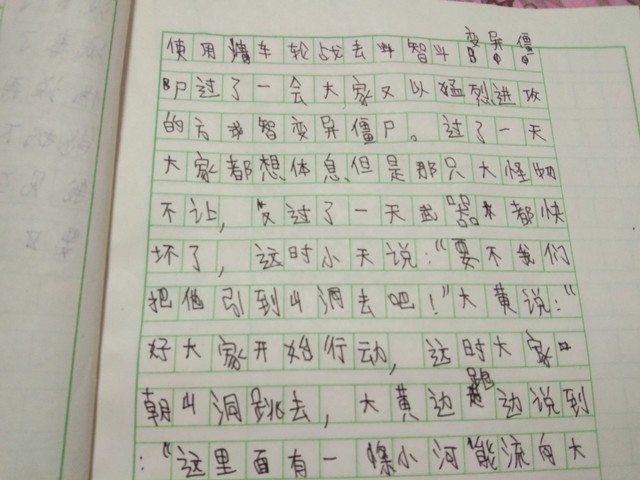 使用 车轮战去 智斗变异僵
尸过了一会大家又以猛烈进攻
的方 智变异僵尸。过了一天
大家都想体息但是那只大怪物
不让，又过了一天武器 都快
坏了，这时小天说：“要不我们
把他引到山洞去吧！”大黄说：“
好大家开始行动，这时大家
朝山洞跳去，大黄边跑边说到
：“这里面有一条小河能流向大